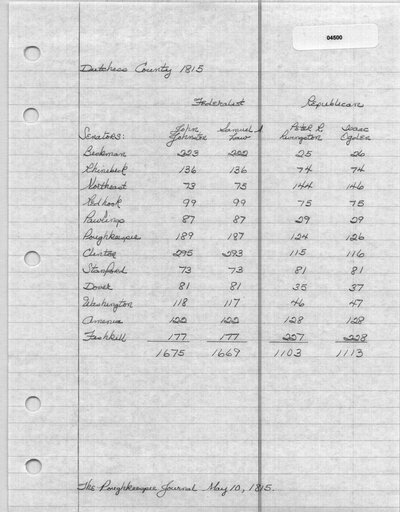 04500
Dutchess County 1815
Federalist Republican
Senators: John Johnston Samuel Law Peter R. Livingston Isaac Ogden
Beekman 223 222 25 26
Rhinebeck 136 136 74 74
Northeast 73 75 144 146
Red hook 99 99 75 75
Pawlings 87 87 29 29
Poughkeepsie 189 187 124 126
Clinton 295 293 115 116
Stanford 73 73 81 81
Dover 81 81 35 37
Washington 118 117 46 47
Amenia 122 122 128 128
Fishkill 177 177 227 228
1675 1669 1103 1113
The Poughkeepsie Journal May 10, 1815.